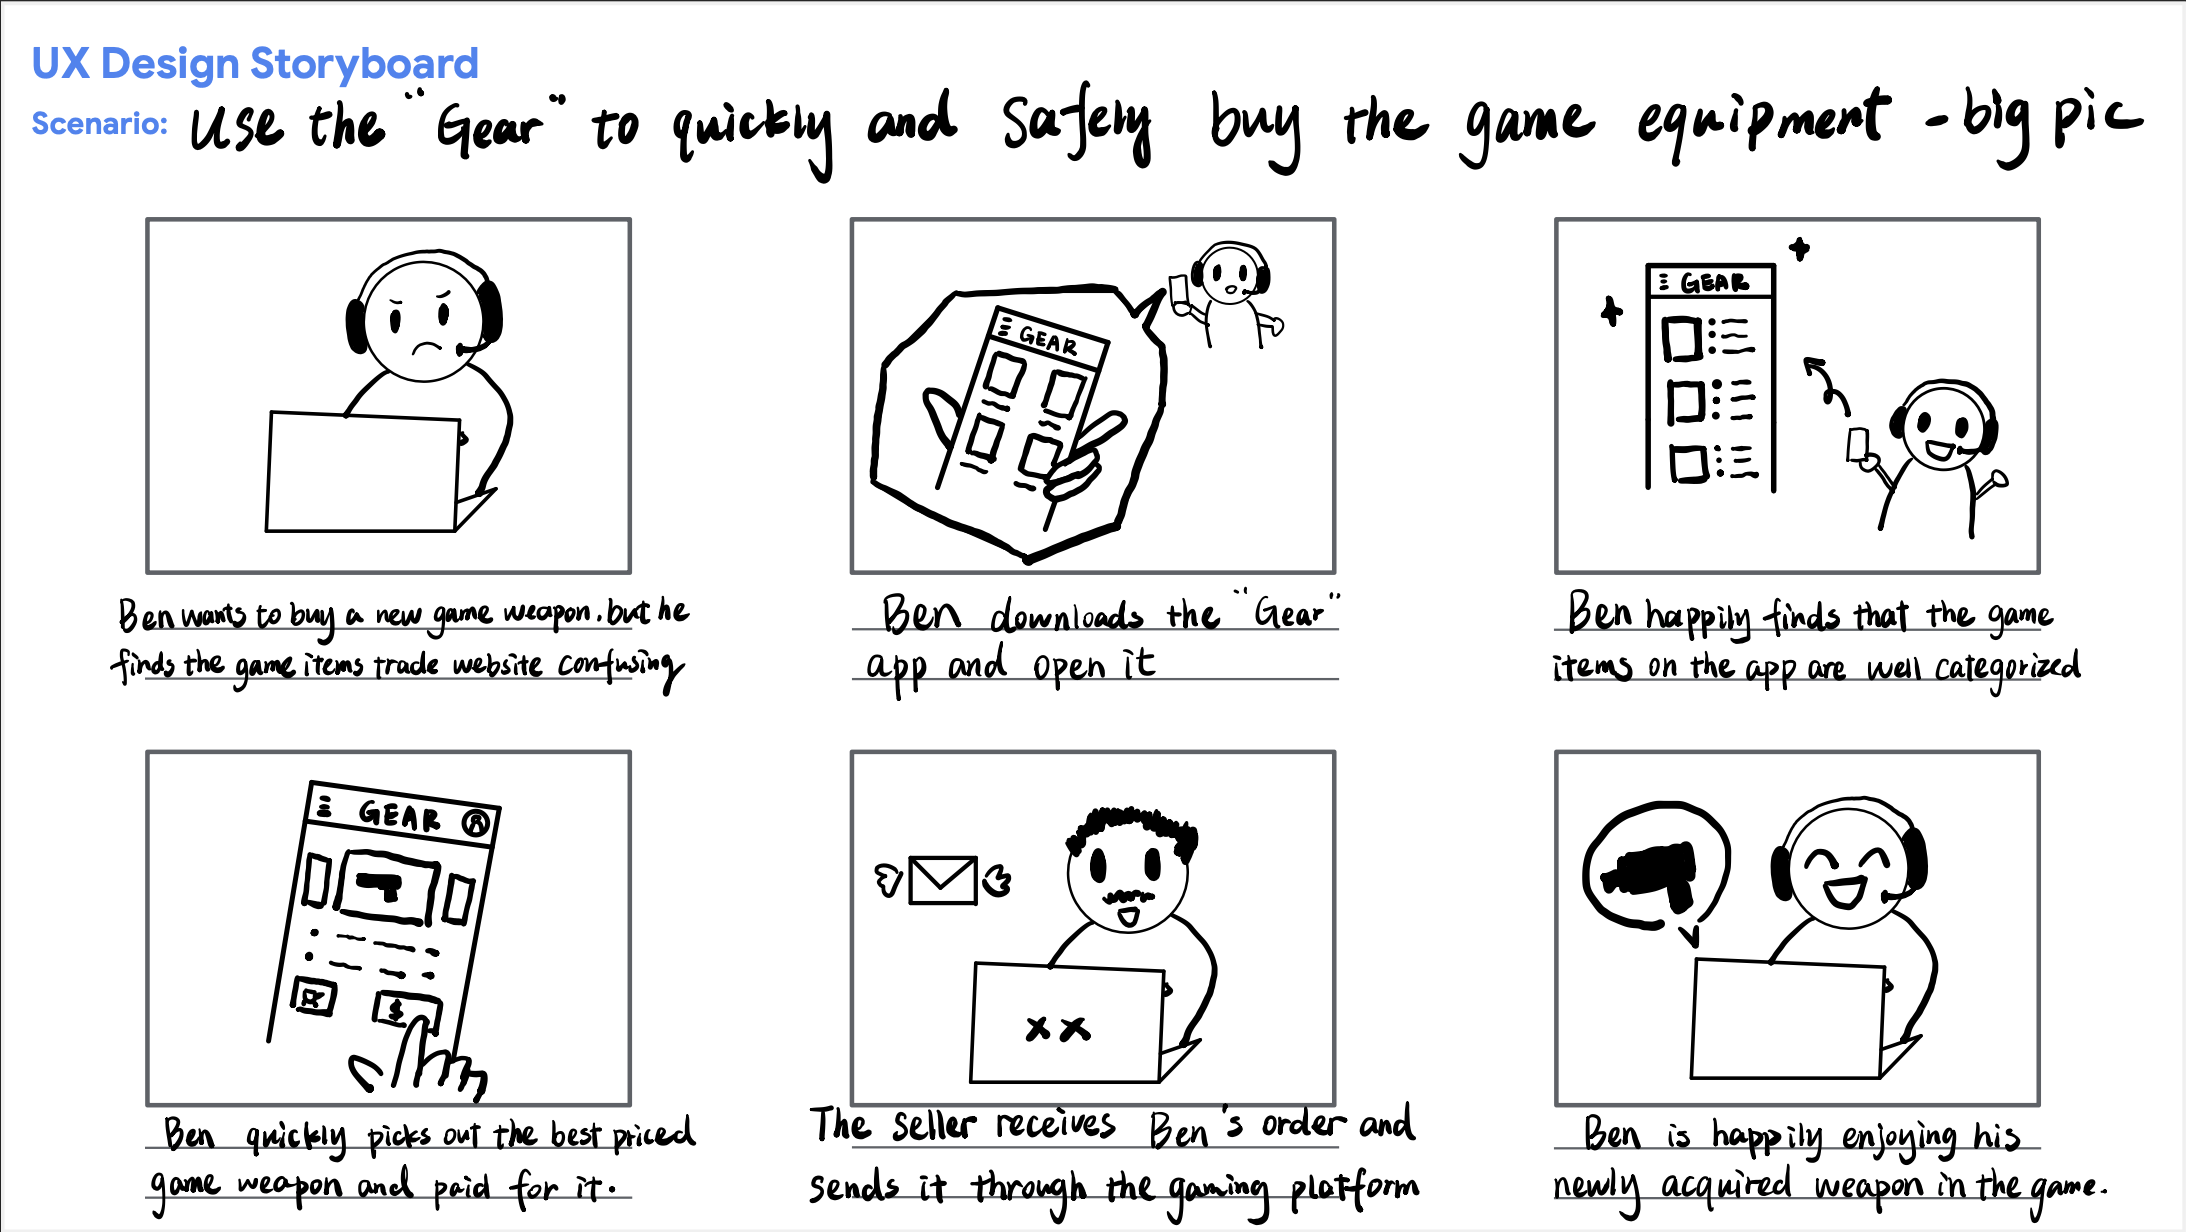 UX Design Storyboard
Scenario: Use the "Gear" to quickly and Safely buy the game equipment - big pic
GEAR
GEAR
Ben wants to buy a new game weapon. but he
finds the game items trade website confusing
Ben downloads the "Gear"
app and open it
Ben happily finds that the game
items on the app are well categorized
GEAR
$
xx
Ben quickly picks out the best priced
game weapon and paid for it.
The seller receives Ben's order and
sends it through the gaming platform
Ben is happily enjoying his
newly acquired weapon in the game.